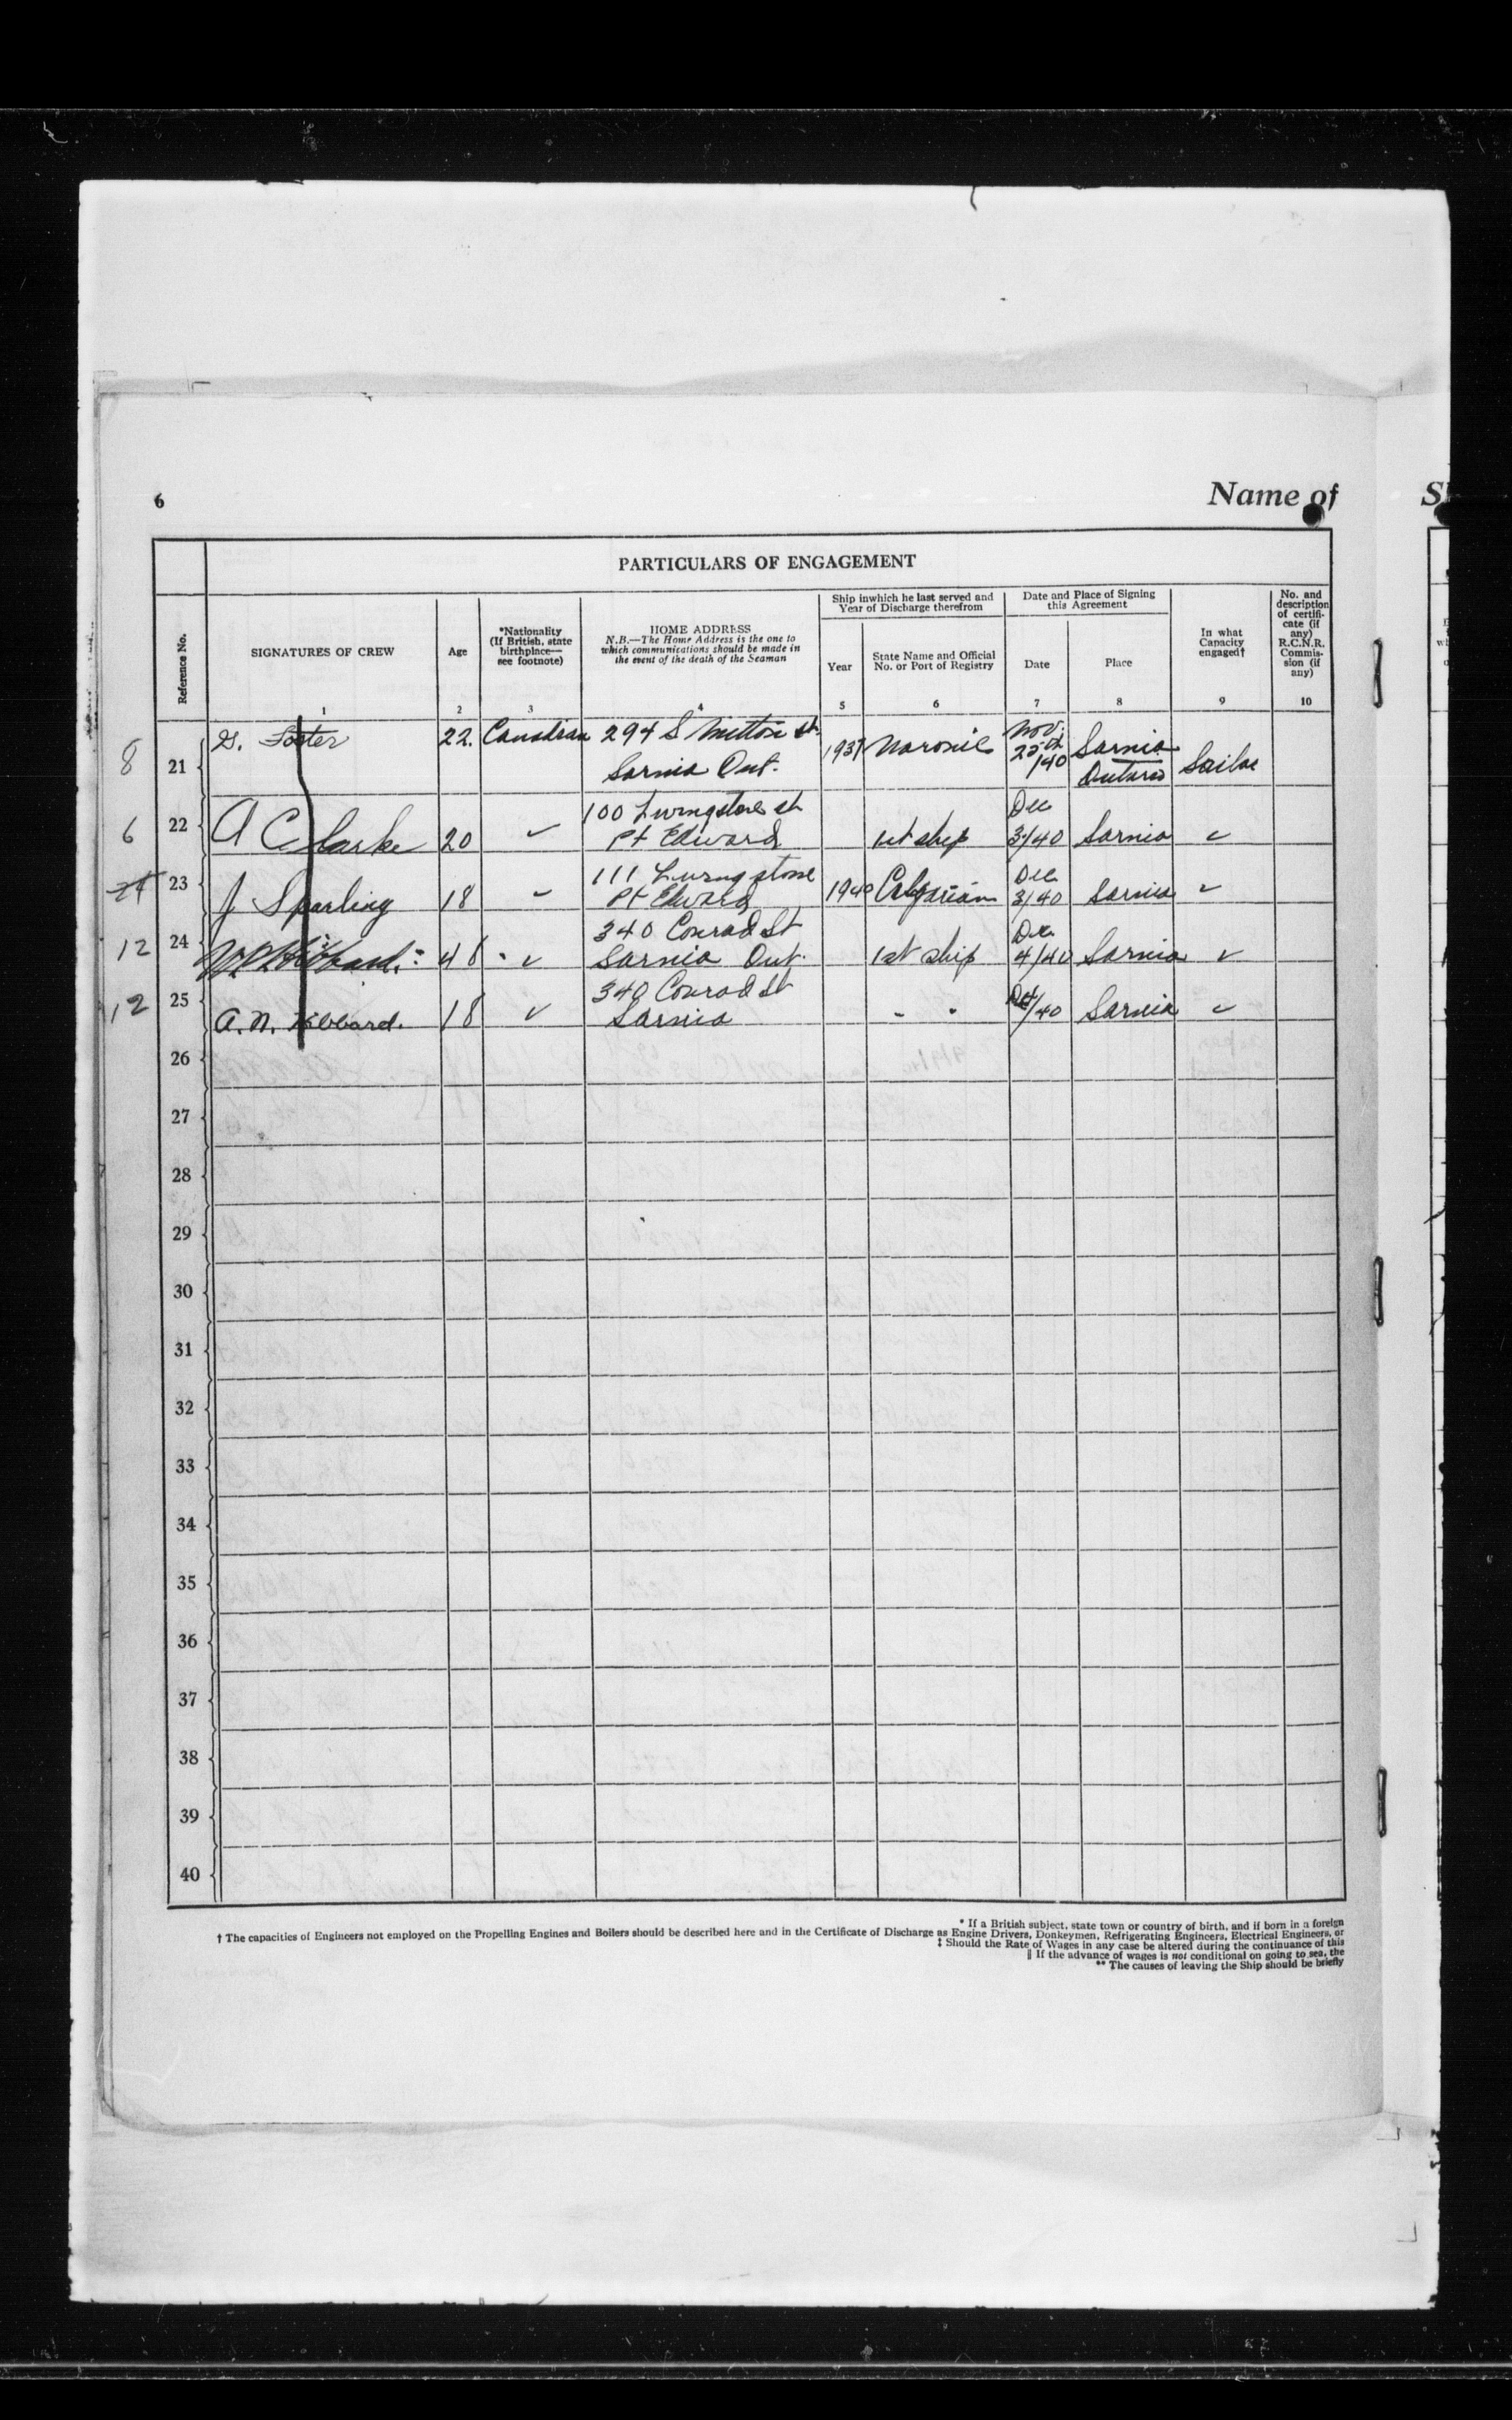 6
Name of
PARTICULARS OF ENGAGEMENT
Reference No.
SIGNATURES OF CREW
1
Age
2
*Nationality
(If British, state
birthplace—
see footnote)
3
HOME ADDRESS
N.B.—The Home Address is the one to
which communications should be made in
the event of the death of the Seaman
4
Ship inwhich he last served and
Year of Discharge therefrom
Year
5
State Name and Official
No. or Port of Registry
6
Date and Place of Signing
this Agreement
Date
7
Place
8
In what
Capacity
engaged†
9
No. and
description
of certifi-
cate (if
any)
R.C.N.R.
Commis-
sion (if
any)
10
8 21 G. Foster 22. Canadian 294 S Mitton St.
Sarnia Ont. 1937 Naronic Nov.
25th
/40 Sarnia
Ontario Sailor
6 22 A Clarke 20 ✓ 100 Livingstone st
Pt Edward 1st ship Dec
3/40 Sarnia ✓
23 J Sparling 18 ✓ 111 Livingstone
Pt Edward 1940 Calgarian Dec
3/40 Sarnia ✓
12 24 Hibbard 48 ✓ 340 Conrad St
Sarnia Ont. 1st ship Dec
4/40 Sarnia ✓
12 25 A. N. Hibbard. 18 ✓ 340 Conrad St
Sarnia " " Dec
4/40 Sarnia ✓
26
27
28
29
30
31
32
33
34
35
36
37
38
39
40
* If a British subject, state town or country of birth, and if born in a foreign
† The capacities of Engineers not employed on the Propelling Engines and Boilers should be described here and in the Certificate of Discharge as Engine Drivers, Donkeymen, Refrigerating Engineers, Electrical Engineers, or
‡ Should the Rate of Wages in any case be altered during the continuance of this
‖ If the advance of wages is not conditional on going to sea, the
** The causes of leaving the Ship should be briefly